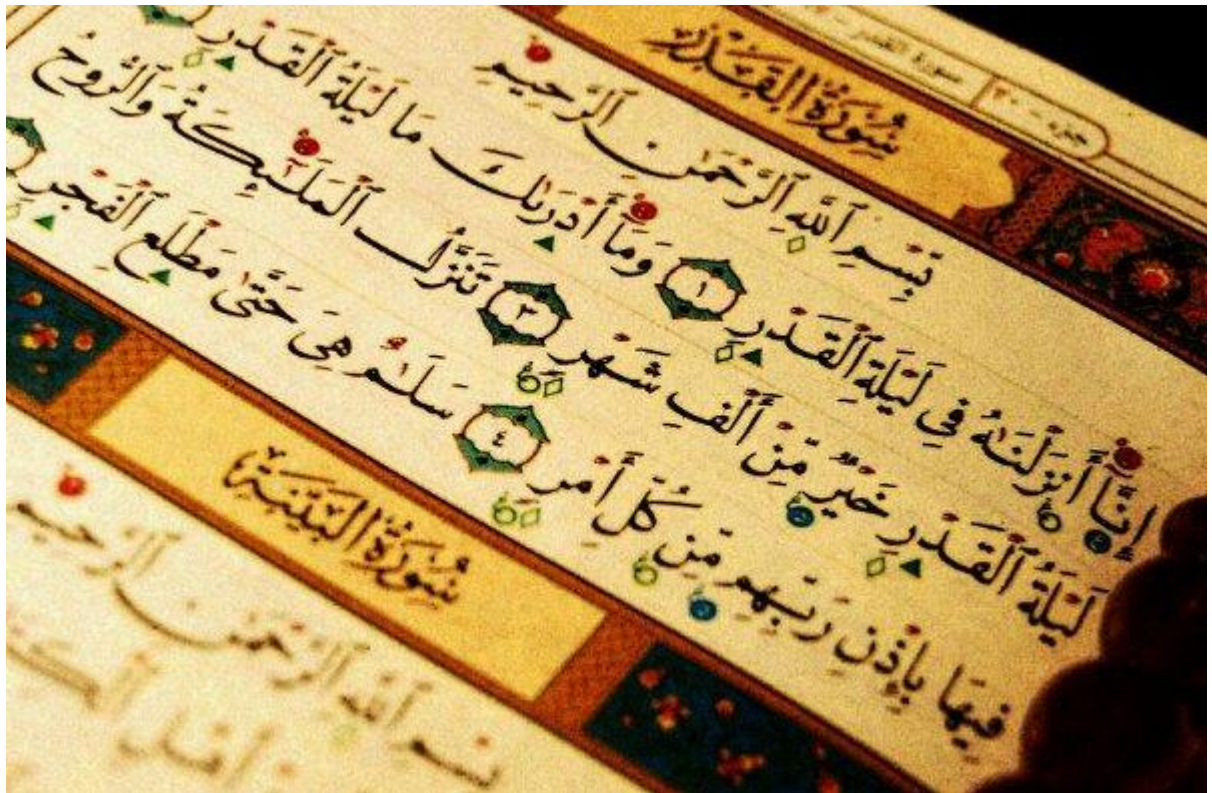 جزء - ٣٠ سورة القدر -
سُورَةُ الْقَدْرِ
بِسْمِ ٱللَّهِ ٱلرَّحْمَٰنِ ٱلرَّحِيمِ
إِنَّآ أَنزَلْنَٰهُ فِى لَيْلَةِ ٱلْقَدْرِ ١ وَمَآ أَدْرَىٰكَ مَا لَيْلَةُ ٱلْقَدْرِ
لَيْلَةُ ٱلْقَدْرِ خَيْرٌ مِّنْ أَلْفِ شَهْرٍ ٣ تَنَزَّلُ ٱلْمَلَٰٓئِكَةُ وَٱلرُّوحُ
فِيهَا بِإِذْنِ رَبِّهِم مِّن كُلِّ أَمْرٍ ٤ سَلَٰمٌ هِىَ حَتَّىٰ مَطْلَعِ ٱلْفَجْرِ
سُورَةُ الْبَيِّنَةِ
بِسْمِ ٱللَّهِ ٱلرَّحْمَٰنِ ٱلرَّحِيمِ